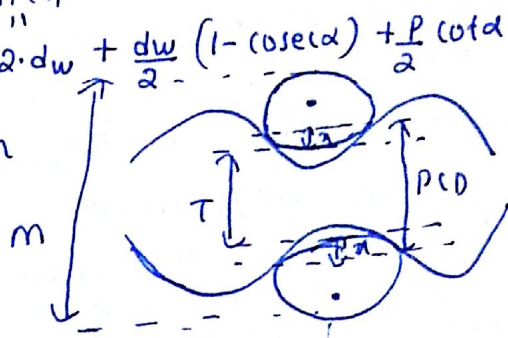 2·dw + dw/2 (1 - cosecα) + P/2 cotα
x
PCD
T
x
M